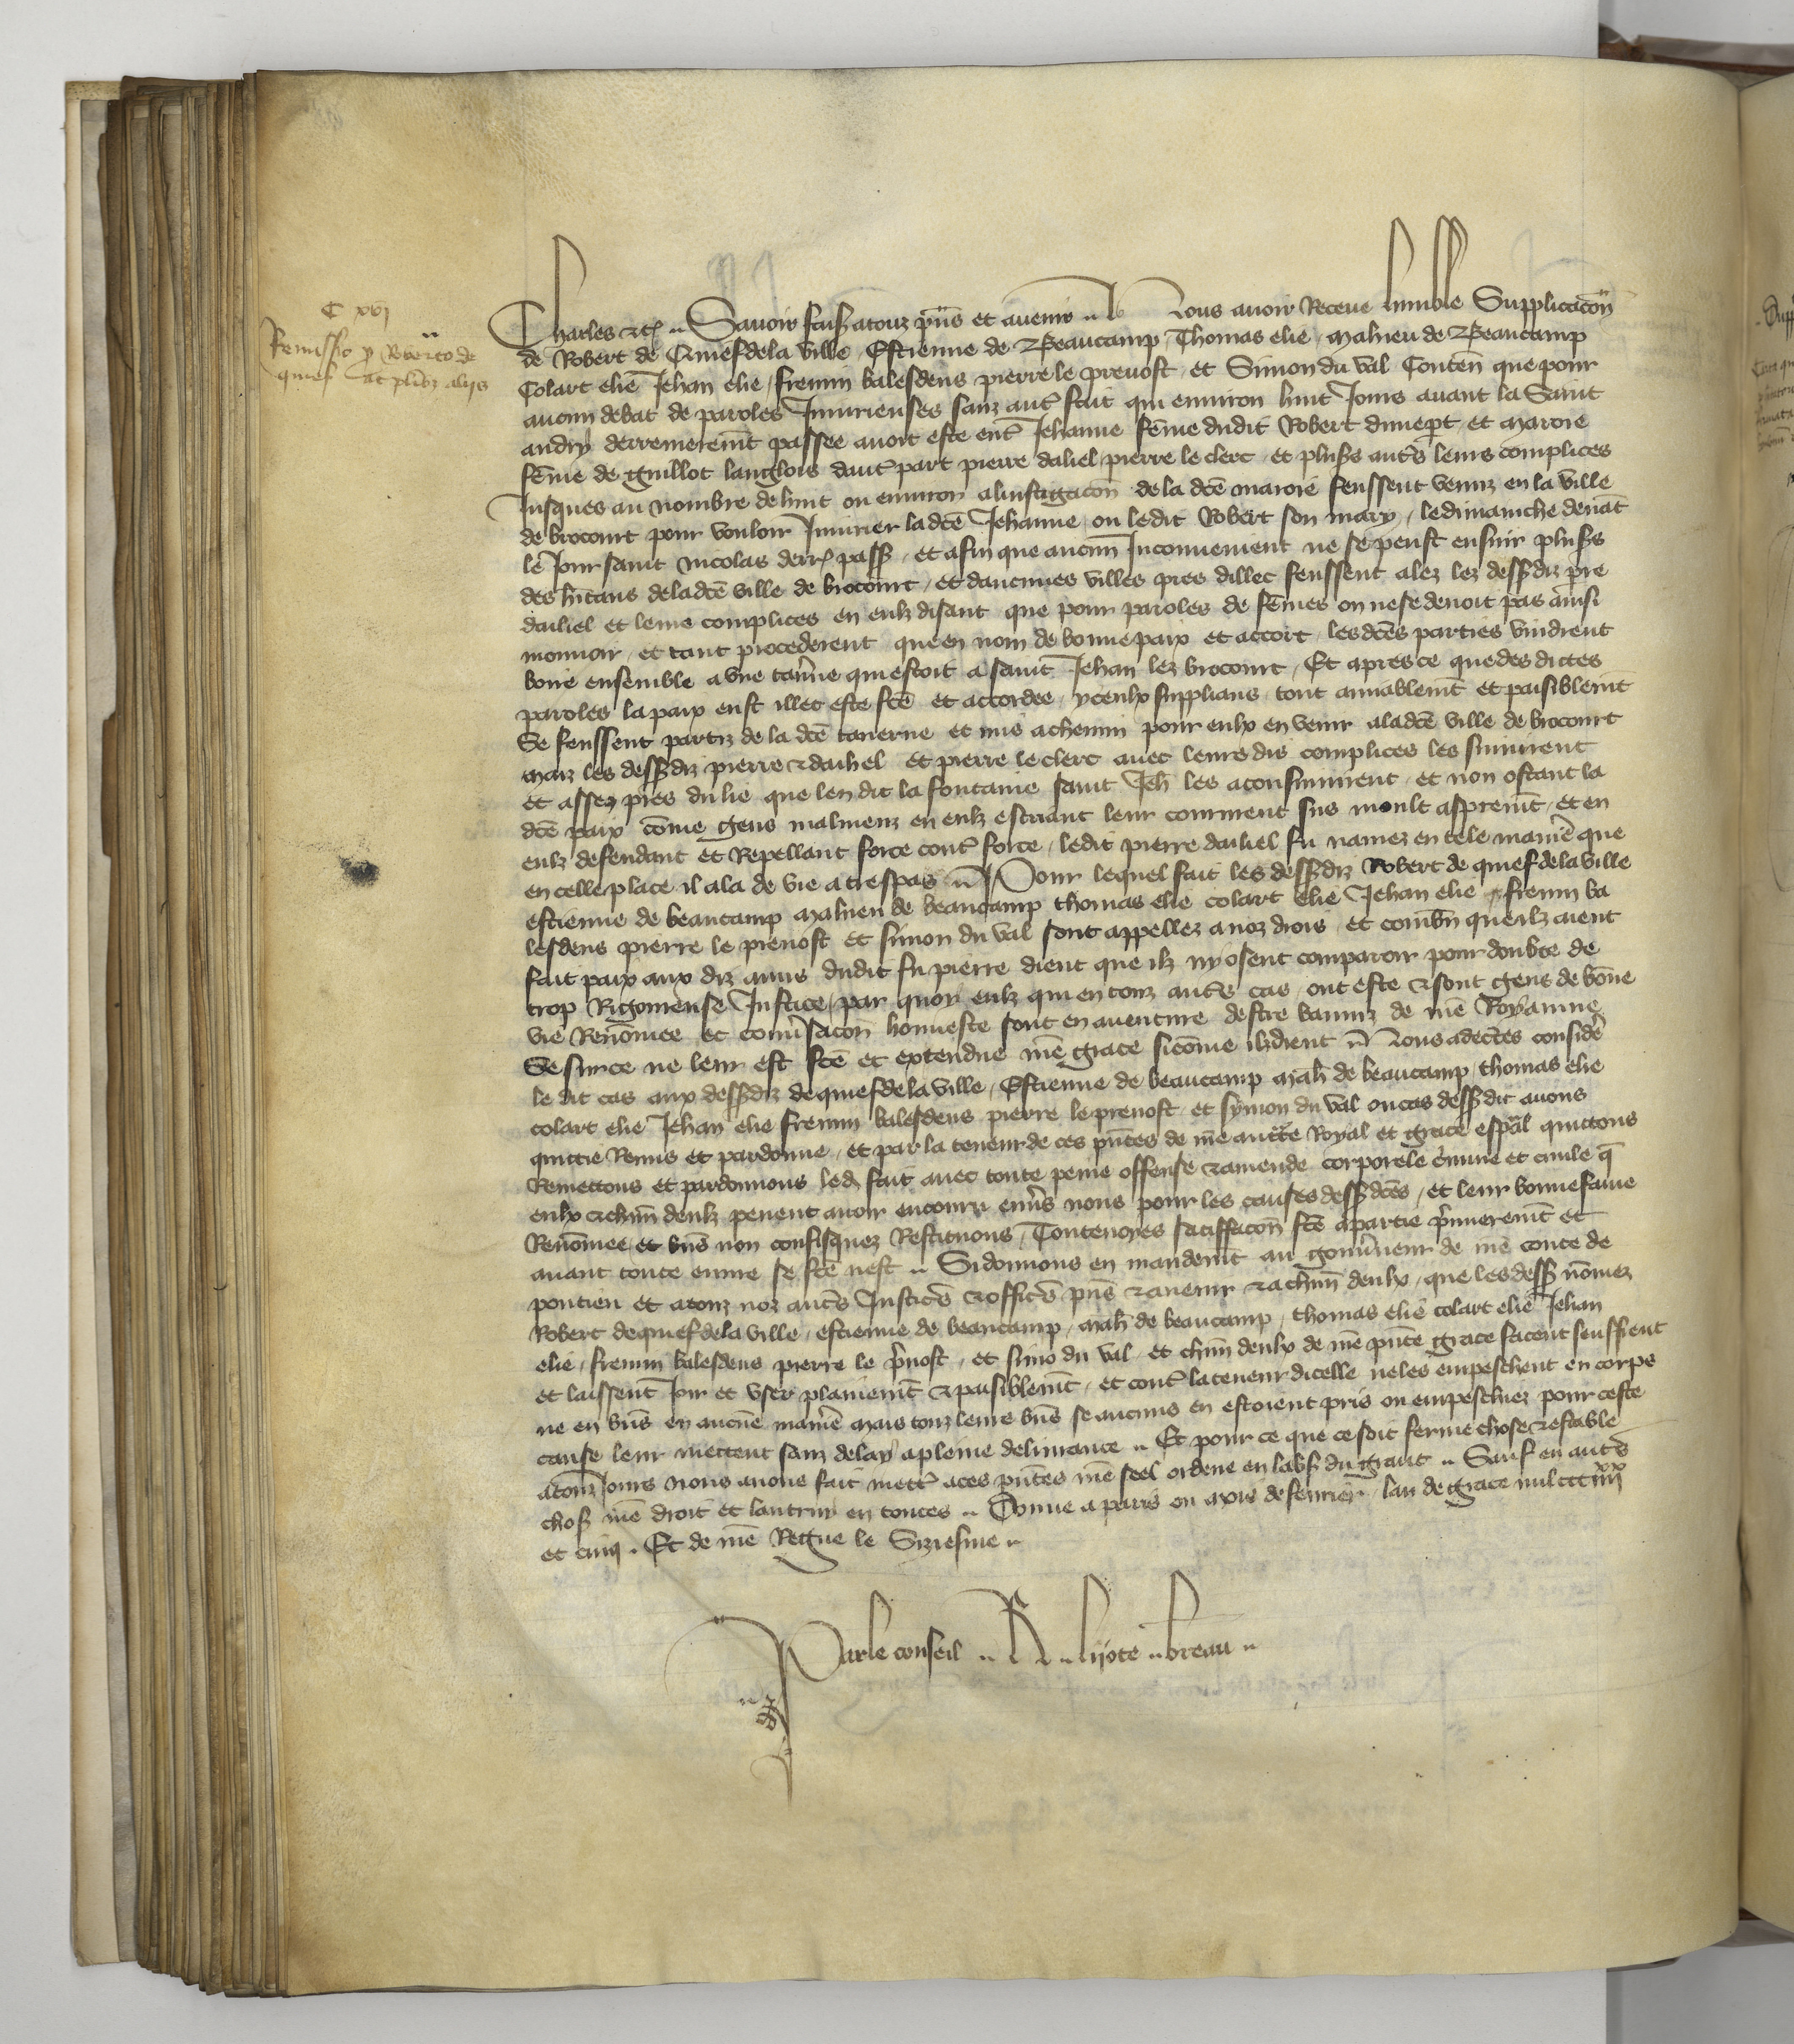 C xvj
Remissio p Roberto de
quief ac plibz alijs
Charles etc. Savoir faisons atouz pñs et avenir Nous avoir Receue humble Supplicacōn
de Robert de Quiefdelaville Estienne de Beaucamp Thomas elie mahieu de Beaucamp
Colart elie Jehan elie fremin balesdens pierre le prevost et Simon du val Contenñ que pour
aucun debat de paroles Iniurieuses sanz autr̄ fait qui environ huit Jours avant la Saint
andry derrenierem̄t passee avoit este entr̄ Jehanne fēme dudit Robert dune pt et maroie
fēme de guillot langlois daut̄ part pierre daliel pierre le clerc et plus̄s aut̄s leurs complices
Jusques au nombre de huit ou environ alinstigacōn de la dc̄e maroie feussent venuz en la ville
de brocourt pour vouloir Iniurier ladc̄e Jehanne ou ledit Robert son mary ledimanche devāt
le Jour saint Nicolas derr̄ pass et afin que aucun Inconvenient ne se peust ensuir plus̄s
des hītans deladc̄e ville de brocourt et daucunes villes pres dillec feussent alez lez dessdiz pre
dailiel et leurs complices en eulz disant que pour paroles de fēmes on ne se devoit pas ainsi
mouvoir et tant procederent que en nom de bonne paix et accort lesdc̄es parties vindrent
boire ensemble a une tav̄ne qui estoit a saint Jehan lez brocourt Et apres ce que des dictes
paroles la paix eust illec este fc̄e et accordee yceulx supplians tout amiablem̄t et paisiblem̄t
Se feussent partiz de la dc̄e taverne et mis achemin pour eulx en venir aladc̄e ville de brocourt
maiz les dessdiz pierre dailiel et pierre le clerc avec leurs dis complices les suivirent
et assez pres du lie que len dit la fontaine saint Jeh̄ les aconsuivirent et non ostant la
dc̄e paix cōme gens malmeuz en eulz escriant leur coururent sus moult asprem̄t et en
eulz defendant et Repellant force contr̄ force ledit pierre dailiel fu navrez en tele manier̄ que
en celle place il ala de vie a trespas Pour lequel fait les dessdiz Robert de quiefdelaville
estienne de beaucamp mahieu de beaucamp thomas elie colart elie Jehan elie fremin ba
lesdens pierre le prevost et simon du val sont appellez a noz drois et combñ que ilz aient
fait paix aux diz amis dudit fu pierre dient que ilz ny osent comparoir pour doubte de
trop Rigoreuse Justice par quoy eulz qui en touz aut̄s cas ont este et sont gens de bōne
vie Renōmee et conv̄sacōn honneste sont en aventure destre banniz de nr̄e Royaume
Se sur ce ne leur est fc̄e et extendue nr̄e grace sicōme ilz dient Nous adec̄tes consider̄
le dit cas aux dessdiz de quiefdelaville Estienne de beaucamp mah̄ de beaucamp thomas elie
colart elie Jehan elie fremin balesdens pierre le prevost et symon du val ou cas dessdit avons
quictie Remis et pardonne et par la teneur de ces pñtes de nr̄e auctc̄te Royal et grace esp̄al quictons
Remettons et pardonnons led fait avec toute peine offense et amende corporele c̄minē et civile q̄
eulx et chūn deulz pevent avoir encouru env̄s nous pour les causes dessdc̄es et leur bonne fame
Renōmee et biēs non confisquez Restituons Toutesvoies satiffacōn fc̄e apartie p̄mierem̄t et
avant toute euvre se fc̄e nest Si donnons en mandem̄t au gouv̄neur de nr̄e conte de
pontieu et atouz noz aut̄s Justic̄s et offic̄s pñs et avenir et achūn deulx que les dess nōmez
Robert de quiefdelaville estienne de beaucamp mah̄ de beaucamp thomas elie colart elie Jehan
elie fremin balesdens pierre le p̄vost et simō du val et chūn deulx de nr̄e pñte grace facent seuffrent
et laissent Joir et user plainem̄t et paisiblem̄t et contr̄ la teneur dicelle ne les empeschent en corps
ne en biēs en aucūe manier̄ mais touz leurs biēs se aucuns en estoient pris ou empeschiez pour ceste
cause leur mettent sanz delay apleine delivrance Et pour ce que ce soit ferme chose et estable
atouz Jours nous avons fait mettr̄ aces pñtes nr̄e seel ordene en labs̄ du grant Sauf en aut̄s
chos nr̄e droit et lautruy en toutes Donne a paris ou moys de fevrier lan de grace mil ccciiijxx
et cinq Et de nr̄e Regne le Siziesme
Par le conseil lijote breau